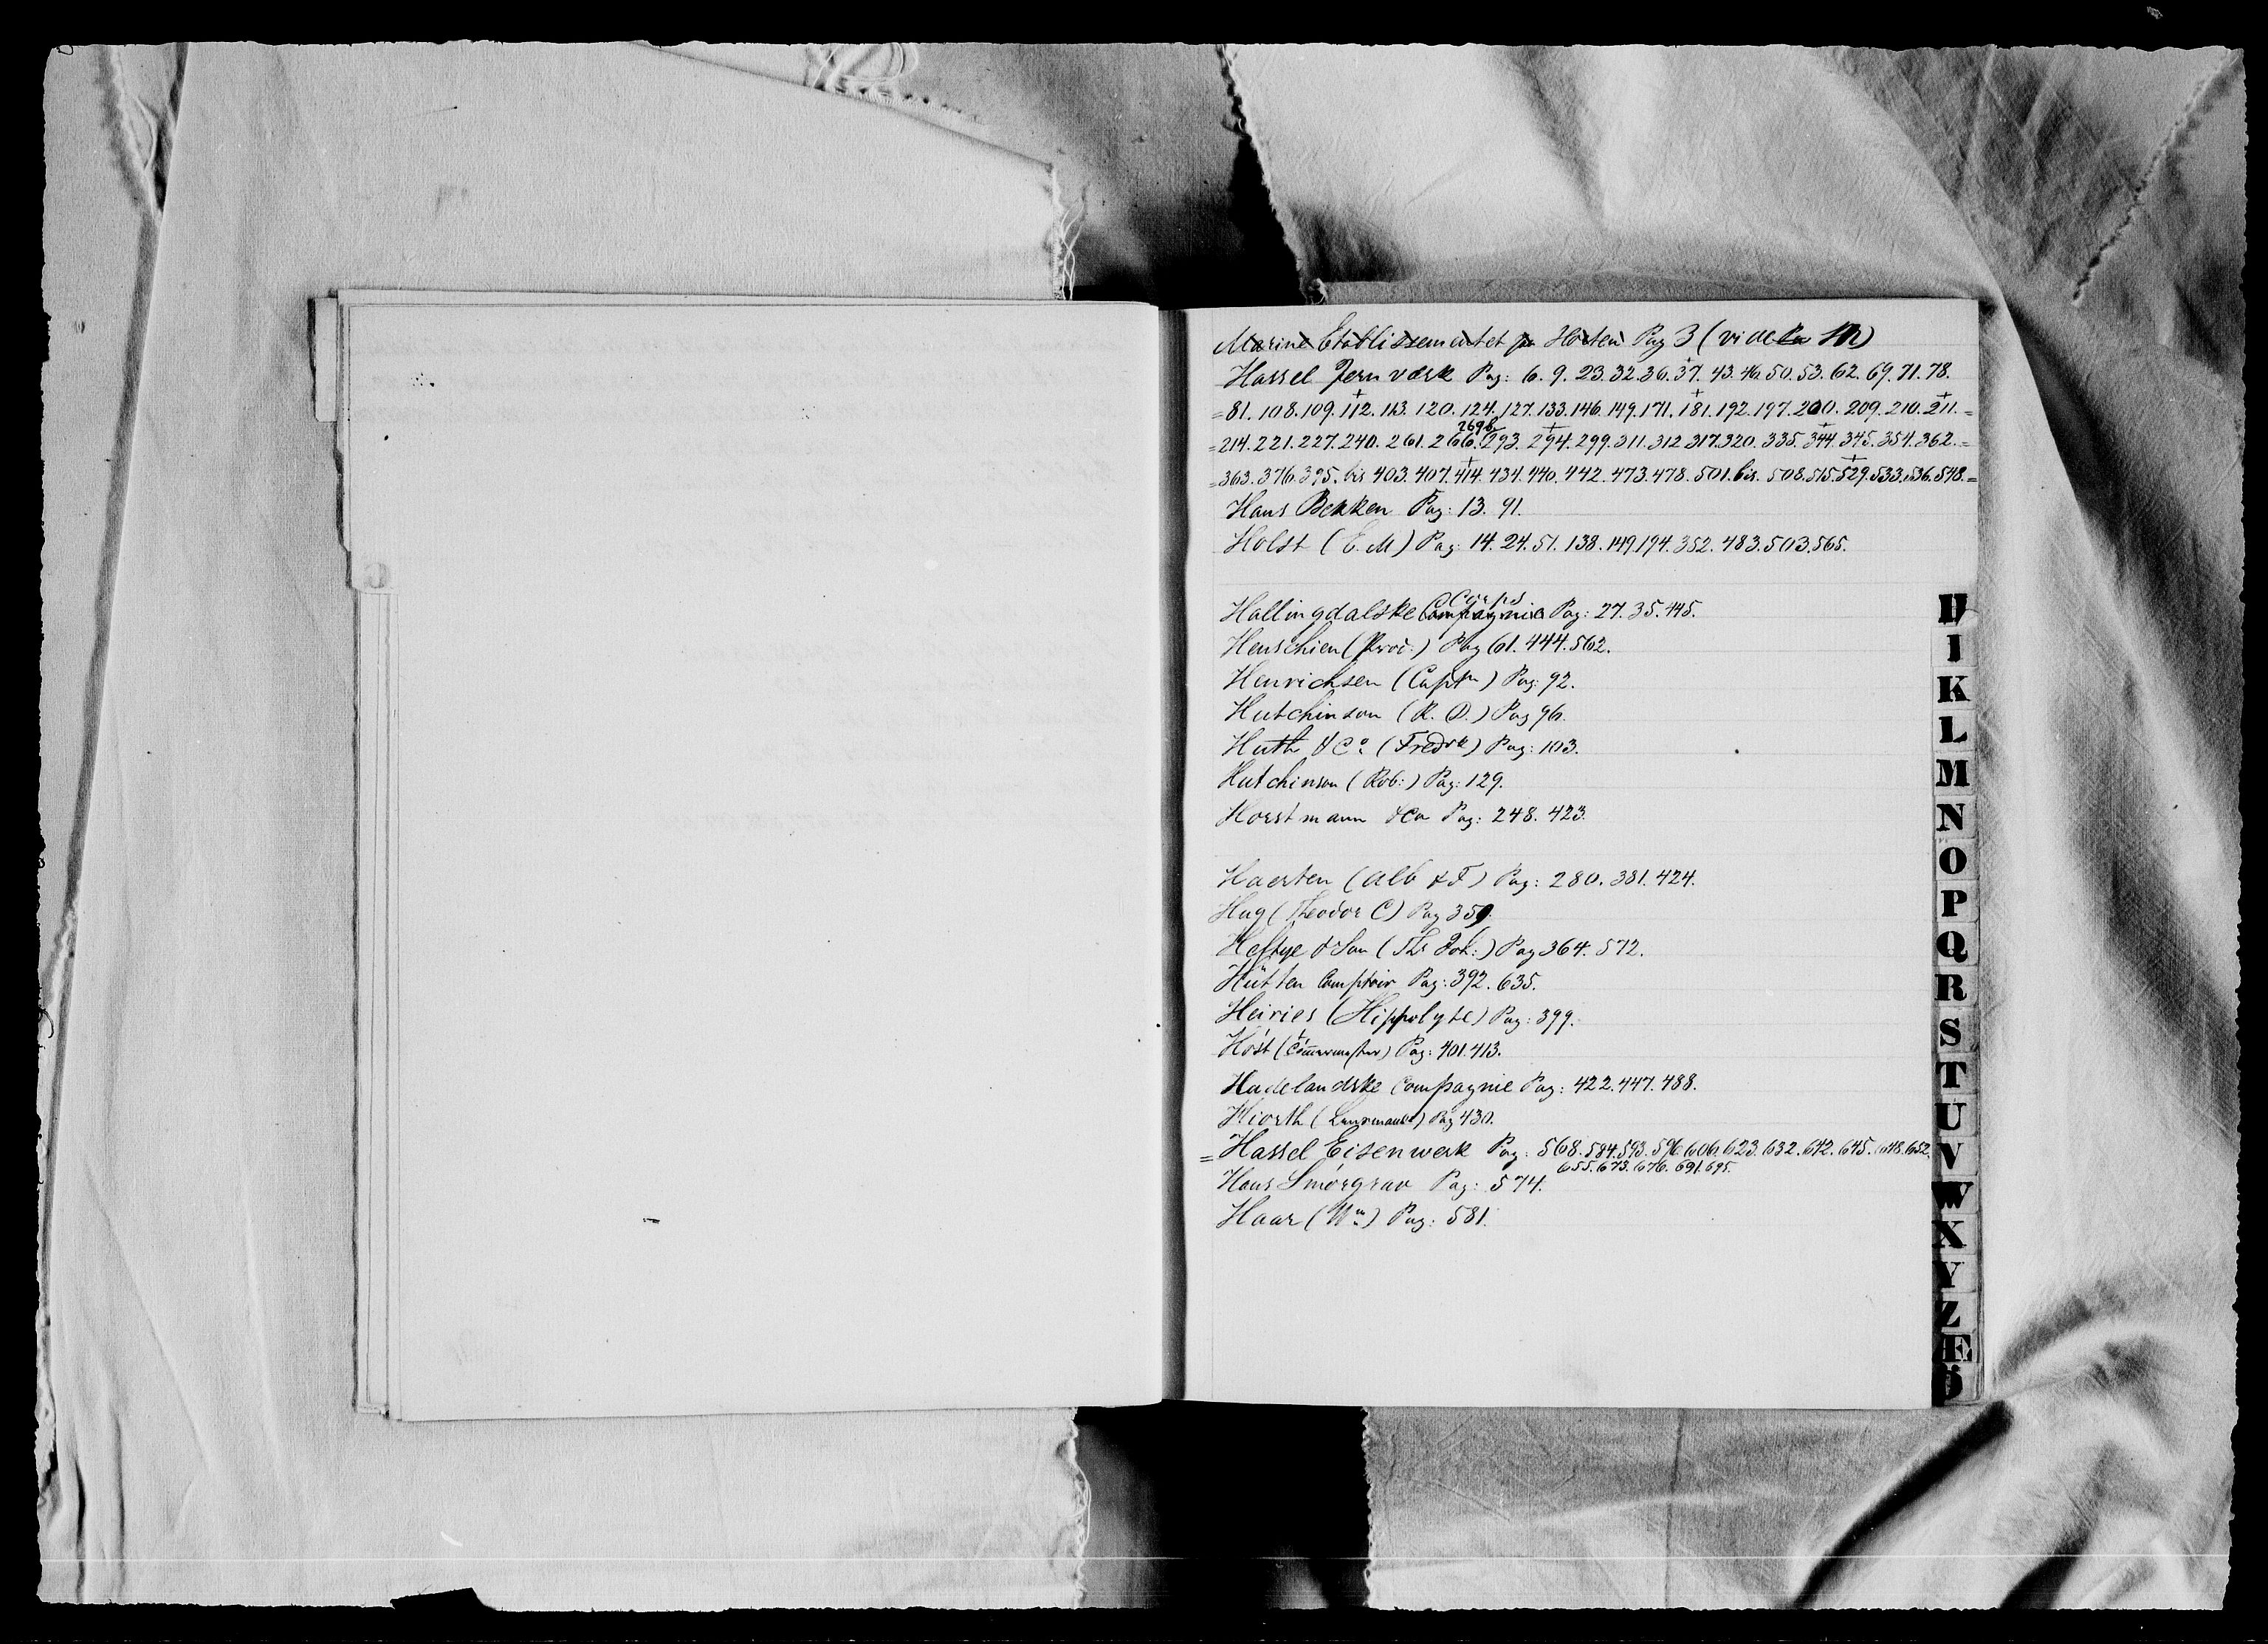 Marine Etablissementet pa Horten Pag 3 (vide M)
Hassel Jernværk Pag: 6. 9. 23. 32. 36. 37. 43. 46. 50. 53. 62. 69. 71. 78.
= 81. 108. 109. 112. 113. 120. 124. 127. 133. 146. 149. 171. 181. 192. 197. 200. 209. 210. 211. =
269b
= 214. 221. 227. 240. 261. 266. 293. 294. 299. 311. 312 317. 320. 335. 344. 345. 354. 362. =
= 363. 376. 395. bis 403. 407. 414. 434. 440. 442. 473. 478. 501. bis. 508. 515. 529. 533. 536. 548. =
Hans Bekken Pag: 13. 91.
Holst (E. M) Pag: 14. 24. 51. 138. 149. 194. 352. 483. 503. 565.
Corps
Hallingdalske Compagnie Pag: 27. 35. 445.
Henschien (Proc:) Pag 61. 444. 562.
Henrichsen (Captn) Pag: 92.
Hutchinson (R. D.) Pag 96.
Huth & Co (Fredrk) Pag: 103.
Hutchinson (Rob:) Pag: 129.
Horstmann & Co Pag: 248. 423.
Haerten (Alb & F) Pag: 280. 381. 424.
Hag (Theodor C) Pag 359.
Heftye & Søn (Ths Joh:) Pag 364. 572.
Hütten Comptoir Pag: 392. 635.
Heiries (Hippolyte) Pag: 399.
Höst Pag: 401. 413.
Hadelandske Compagnie Pag: 422. 447. 488.
Hiorth (Lensmand) Pag 430.
= Hassel Eisenwerk Pag: 568. 584. 593. 596. 606. 623. 632. 642. 645. 648. 652.
655. 673. 676. 691. 695.
Hans Smörgrav Pag: 574.
Haar (Wm) Pag: 581.
H
I
K
L
M
N
O
P
Q
R
S
T
U
V
W
X
Y
Z
Æ
Ö